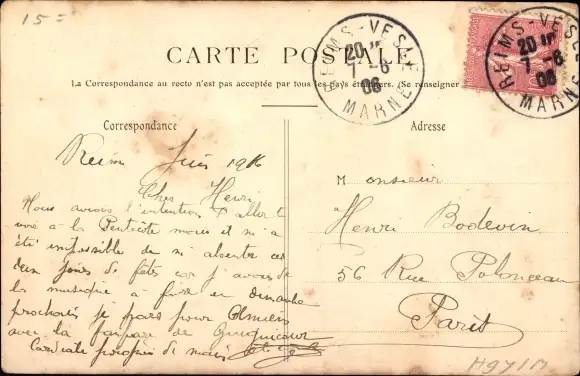 15 =
CARTE POSTALE
La Correspondance au recto n'est pas acceptée par tous les pays étrangers. (Se renseigner
REIMS-VESLE
20
7-6
06
MARNE
REIMS-VESLE
20
7-6
06
MARNE
Correspondance
Reims Juin 1906
Cher Henri
Nous avions l'intention d'aller te
voir à la Pentecôte mais il m'a
été impossible de m'absenter ces
deux jours de fêtes car j'avais de
la musique à faire et dimanche
prochain je pars pour Amiens
avec la fanfare de Guignicourt
Cordiale poignée de main
Adresse
Monsieur
Henri Bodevin
56 Rue Polonceau
Paris